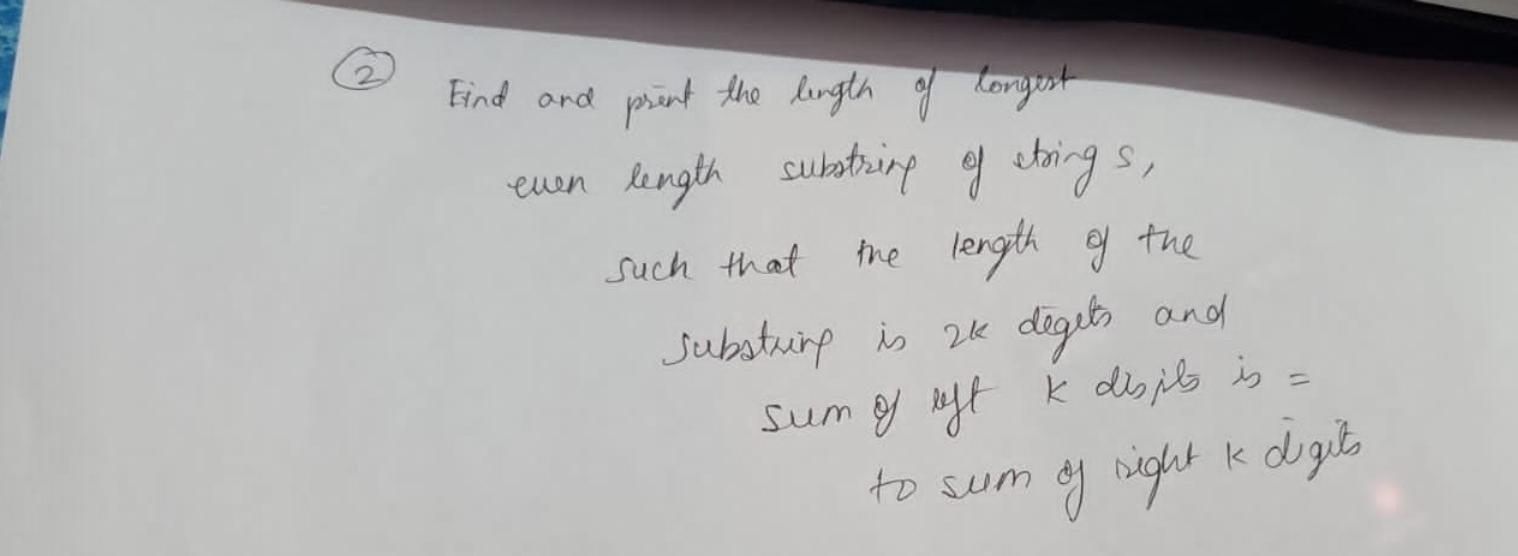 ② Find and print the length of longest
even length substring of string s,
such that the length of the
substring is 2k digits and
sum of left k digits is =
to sum of right k digits